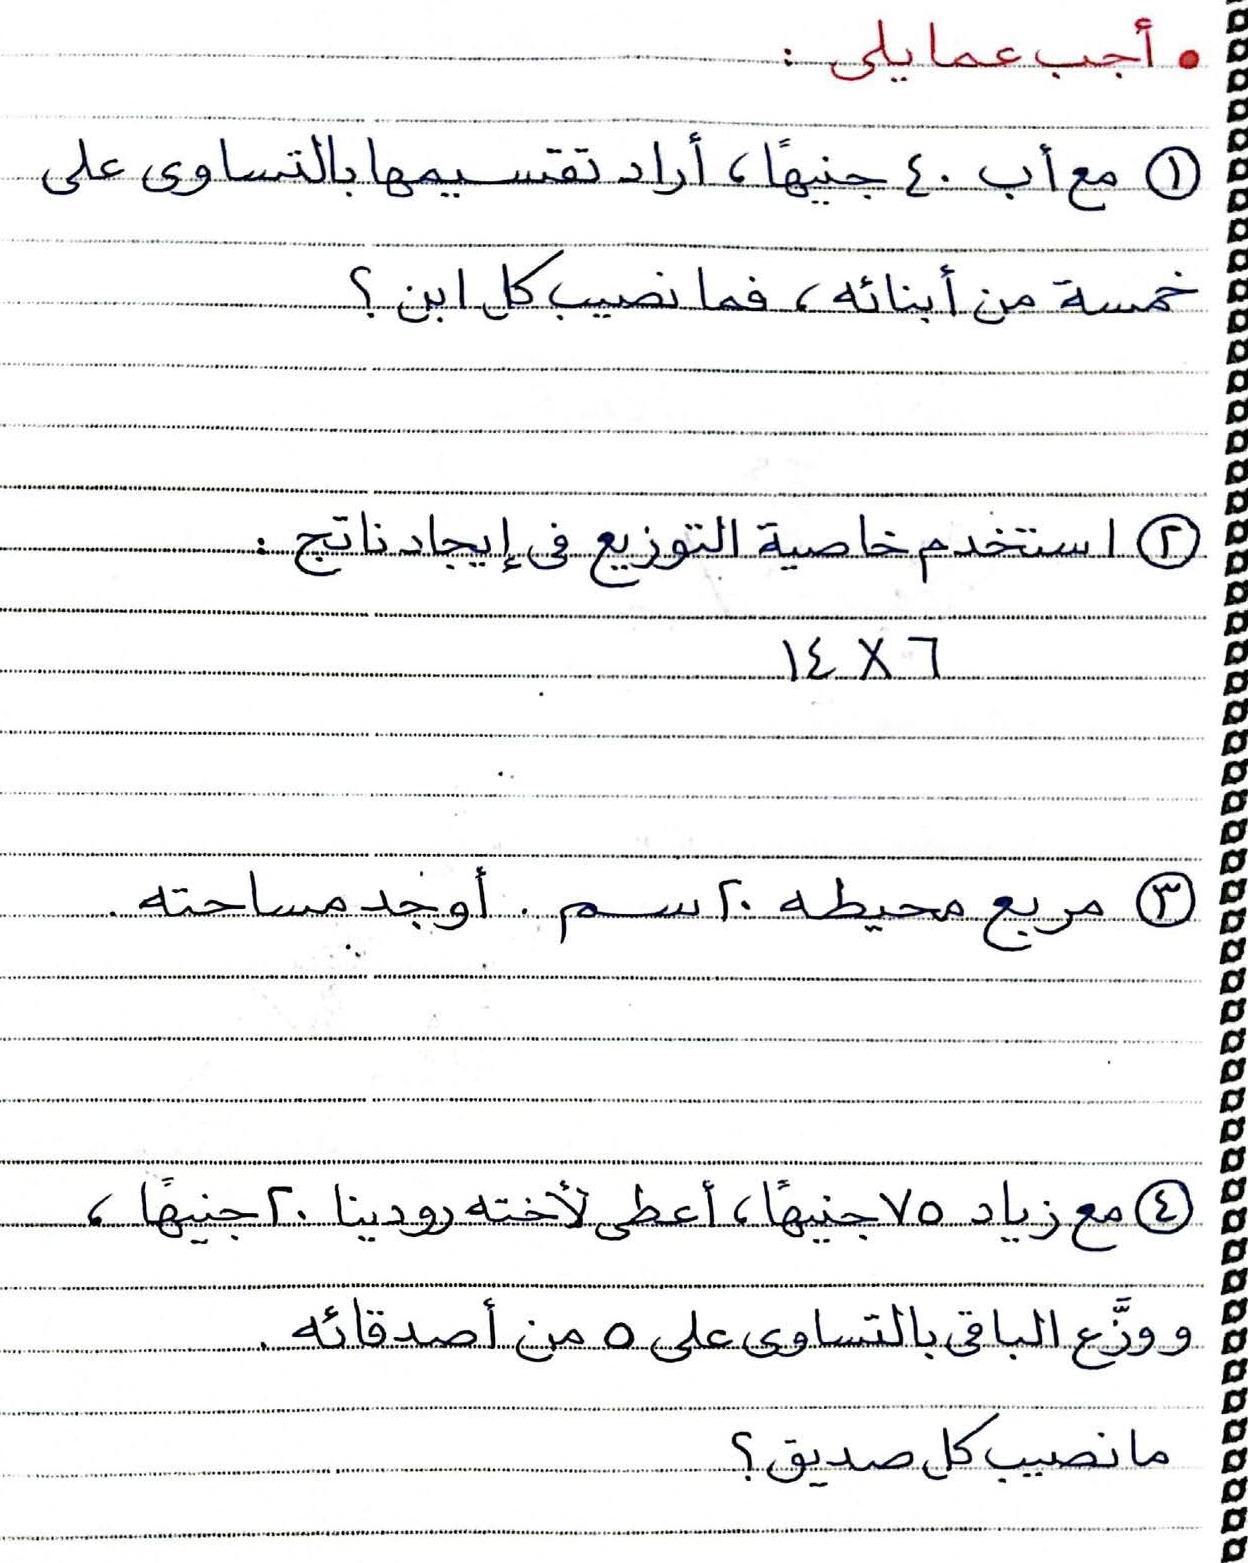 • أجب عما يلى :
① مع أب ٤٠ جنيهًا، أراد تقسيمها بالتساوى على
خمسة من أبنائه، فما نصيب كل ابن ؟
② استخدم خاصية التوزيع فى إيجاد ناتج :
٦ × ١٤
③ مربع محيطه ٢٠ سم . أوجد مساحته .
④ مع زياد ٧٥ جنيهًا، أعطى لأخته رودينا ٢٠ جنيهًا،
ووزَّع الباقى بالتساوى على ٥ من أصدقائه .
ما نصيب كل صديق ؟